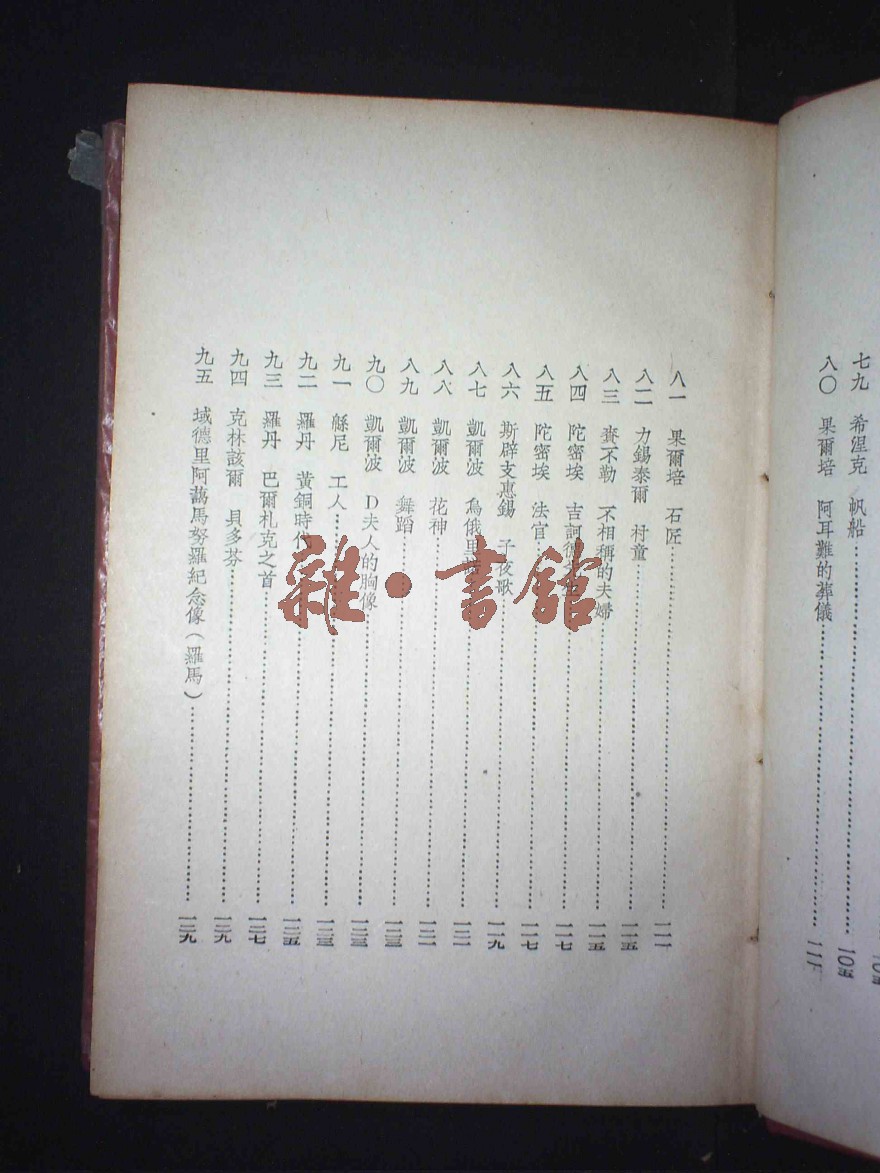 七九 希涅克 帆船 一〇五
八〇 果爾培 阿耳難的葬儀 一一一
八一 果爾培 石匠 一一一
八二 力錫泰爾 村童 一一五
八三 賚不勒 不相稱的夫婦 一一五
八四 陀密埃 吉訶德 一一七
八五 陀密埃 法官 一一七
八六 斯辟支惠錫 子夜歌 一一九
八七 凱爾波 烏俄里 一二一
八八 凱爾波 花神 一二一
八九 凱爾波 舞蹈 一二三
九〇 凱爾波 D夫人的胸像 一二三
九一 緜尼 工人 一二三
九二 羅丹 黃銅時代 一二五
九三 羅丹 巴爾札克之首 一二七
九四 克林該爾 貝多芬 一二九
九五 域德里阿藹馬努羅紀念像(羅馬) 一二九
雜·書館